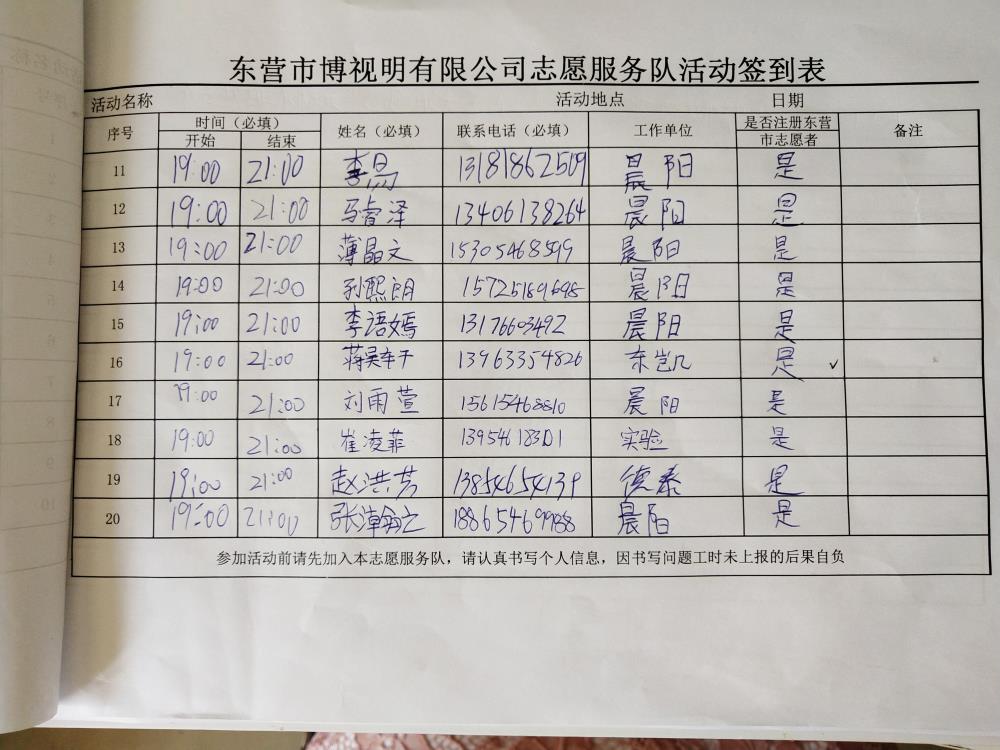 东营市博视明有限公司志愿服务队活动签到表
活动名称 活动地点 日期
序号 时间（必填） 姓名（必填） 联系电话（必填） 工作单位 是否注册东营市志愿者 备注
开始 结束
11 19:00 21:00 李昌 13181862509 晨阳 是
12 19:00 21:00 马睿泽 13406138264 晨阳 是
13 19:00 21:00 薄晶文 15305468599 晨阳 是
14 19:00 21:00 孙熙朗 15725189698 晨阳 是
15 19:00 21:00 李语嫣 13176603492 晨阳 是
16 19:00 21:00 13963354826 东凯 是 ✓
17 19:00 21:00 刘雨萱 15615468810 晨阳 是
18 19:00 21:00 崔凌菲 139546183D1 实验 是
19 19:00 21:00 赵洪芳 13854654139 德泰 是
20 19:00 21:00 18865469988 晨阳 是
参加活动前请先加入本志愿服务队，请认真书写个人信息，因书写问题工时未上报的后果自负